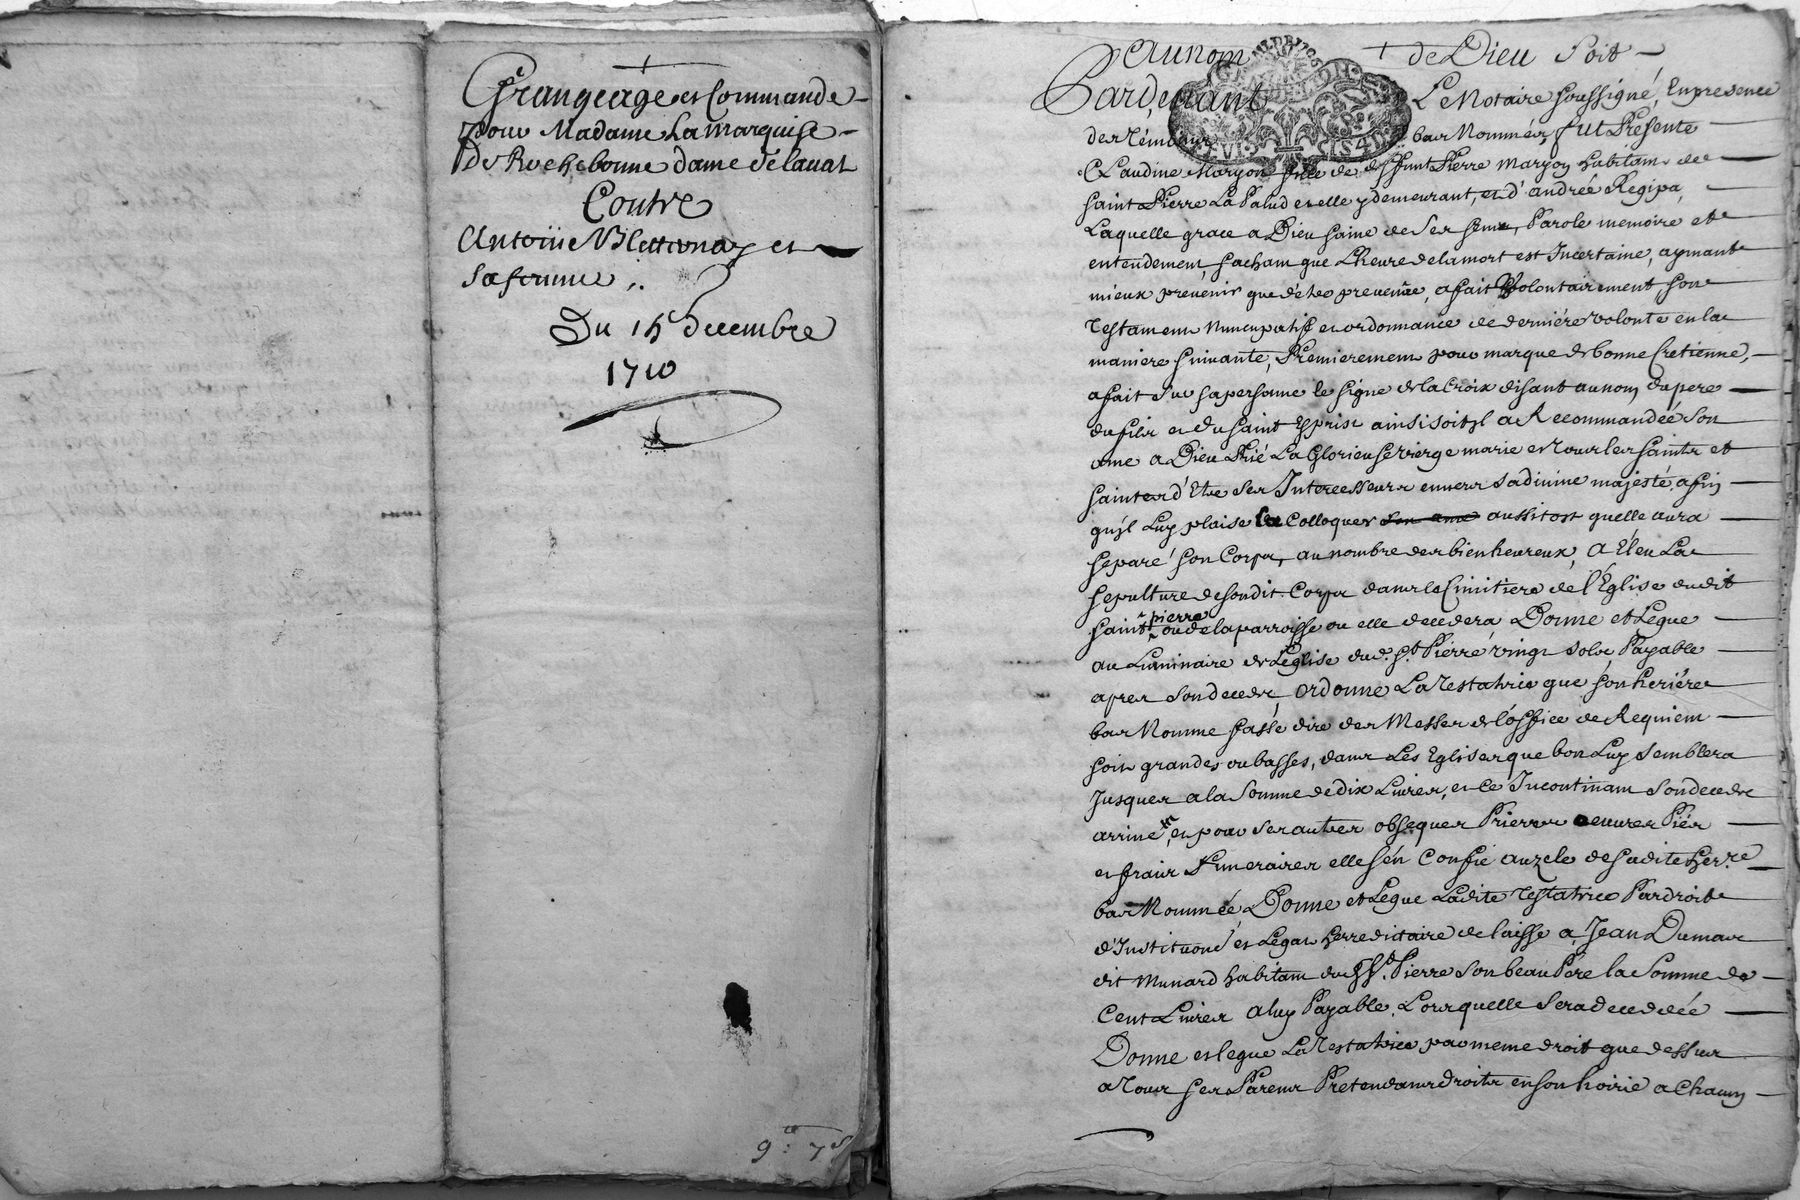 Grangeage et Commande
pour Madame La marquise
De Rochebonne dame de lavat
Contre
Antoine Blettonay et
Sa femme
Du 15 decembre
1710
Au nom de Dieu Soit
Pardevant Le Notaire soussigné, En presence
des témoins bas Nommés, fut Presente
Claudine Maryon fille de deffunt Pierre Maryon habitant de
saint Pierre La Palud et elle y demeurant, et d'andreé Regipa,
Laquelle grace a Dieu saine de Ses sens, Parole memoire et
entendement, sachant que L'heure de la mort est Incertaine, aymant
mieux prevenir que d'etre prevenüe, a fait Volontairement, son
Testament Nuncupatif et ordonnance de derniére volonte en la
maniere suivante, Premierement pour marque de bonne Cretienne,
a fait sur sa personne le signe de la Croix disant au nom du pere
du fils et du saint Esprit ainsi soit yl a Recommandeé Son
ame a Dieu Prié La Glorieuse vierge marie et tous les saints et
saintes d'Etre Ses Intercesseurs envers Sa divine majesté, afin
qu'yl Luy plaise la Colloquer son ame aussitost quelle aura
separé son Corps, au nombre des bienheureux, a Eleu La
sepulture de sondit Corps dans le Cimitiere de l'Eglise dudit
saint pierre ou de la parroisse ou elle decedera Donne et Legue
au Luminaire de L'eglise dud. St. Pierre vingt sols Payable
apres Son decedz, ordonne La Testatrice que son heriére
bas Nommé fasse dire des Messes de l'office de Requiem
soit grandes ou basses, dans Les Eglises que bon Luy semblera
Jusques a la Somme de dix Livres, et ce Incontinant Son decedz
arrivé, et pour Ses autres obseques Prieres oeuvres Piés
et frais funeraires elle s'en Confie au zele de sadite her.re
bas Nommeé, Donne et Legue Ladite Testatrice Par droit
d'Institution et Legat herreditaire delaisse a Jean Dumas
dit Munard habitant dud. St. Pierre Son beau Pére la Somme de
Cent Livres a luy Payable Lorsquelle Sera decedeé
Donne et legue La Testatrice par meme droit que dessus
a Tous Ses Parens Pretendants droits en son hoirie a Chacun